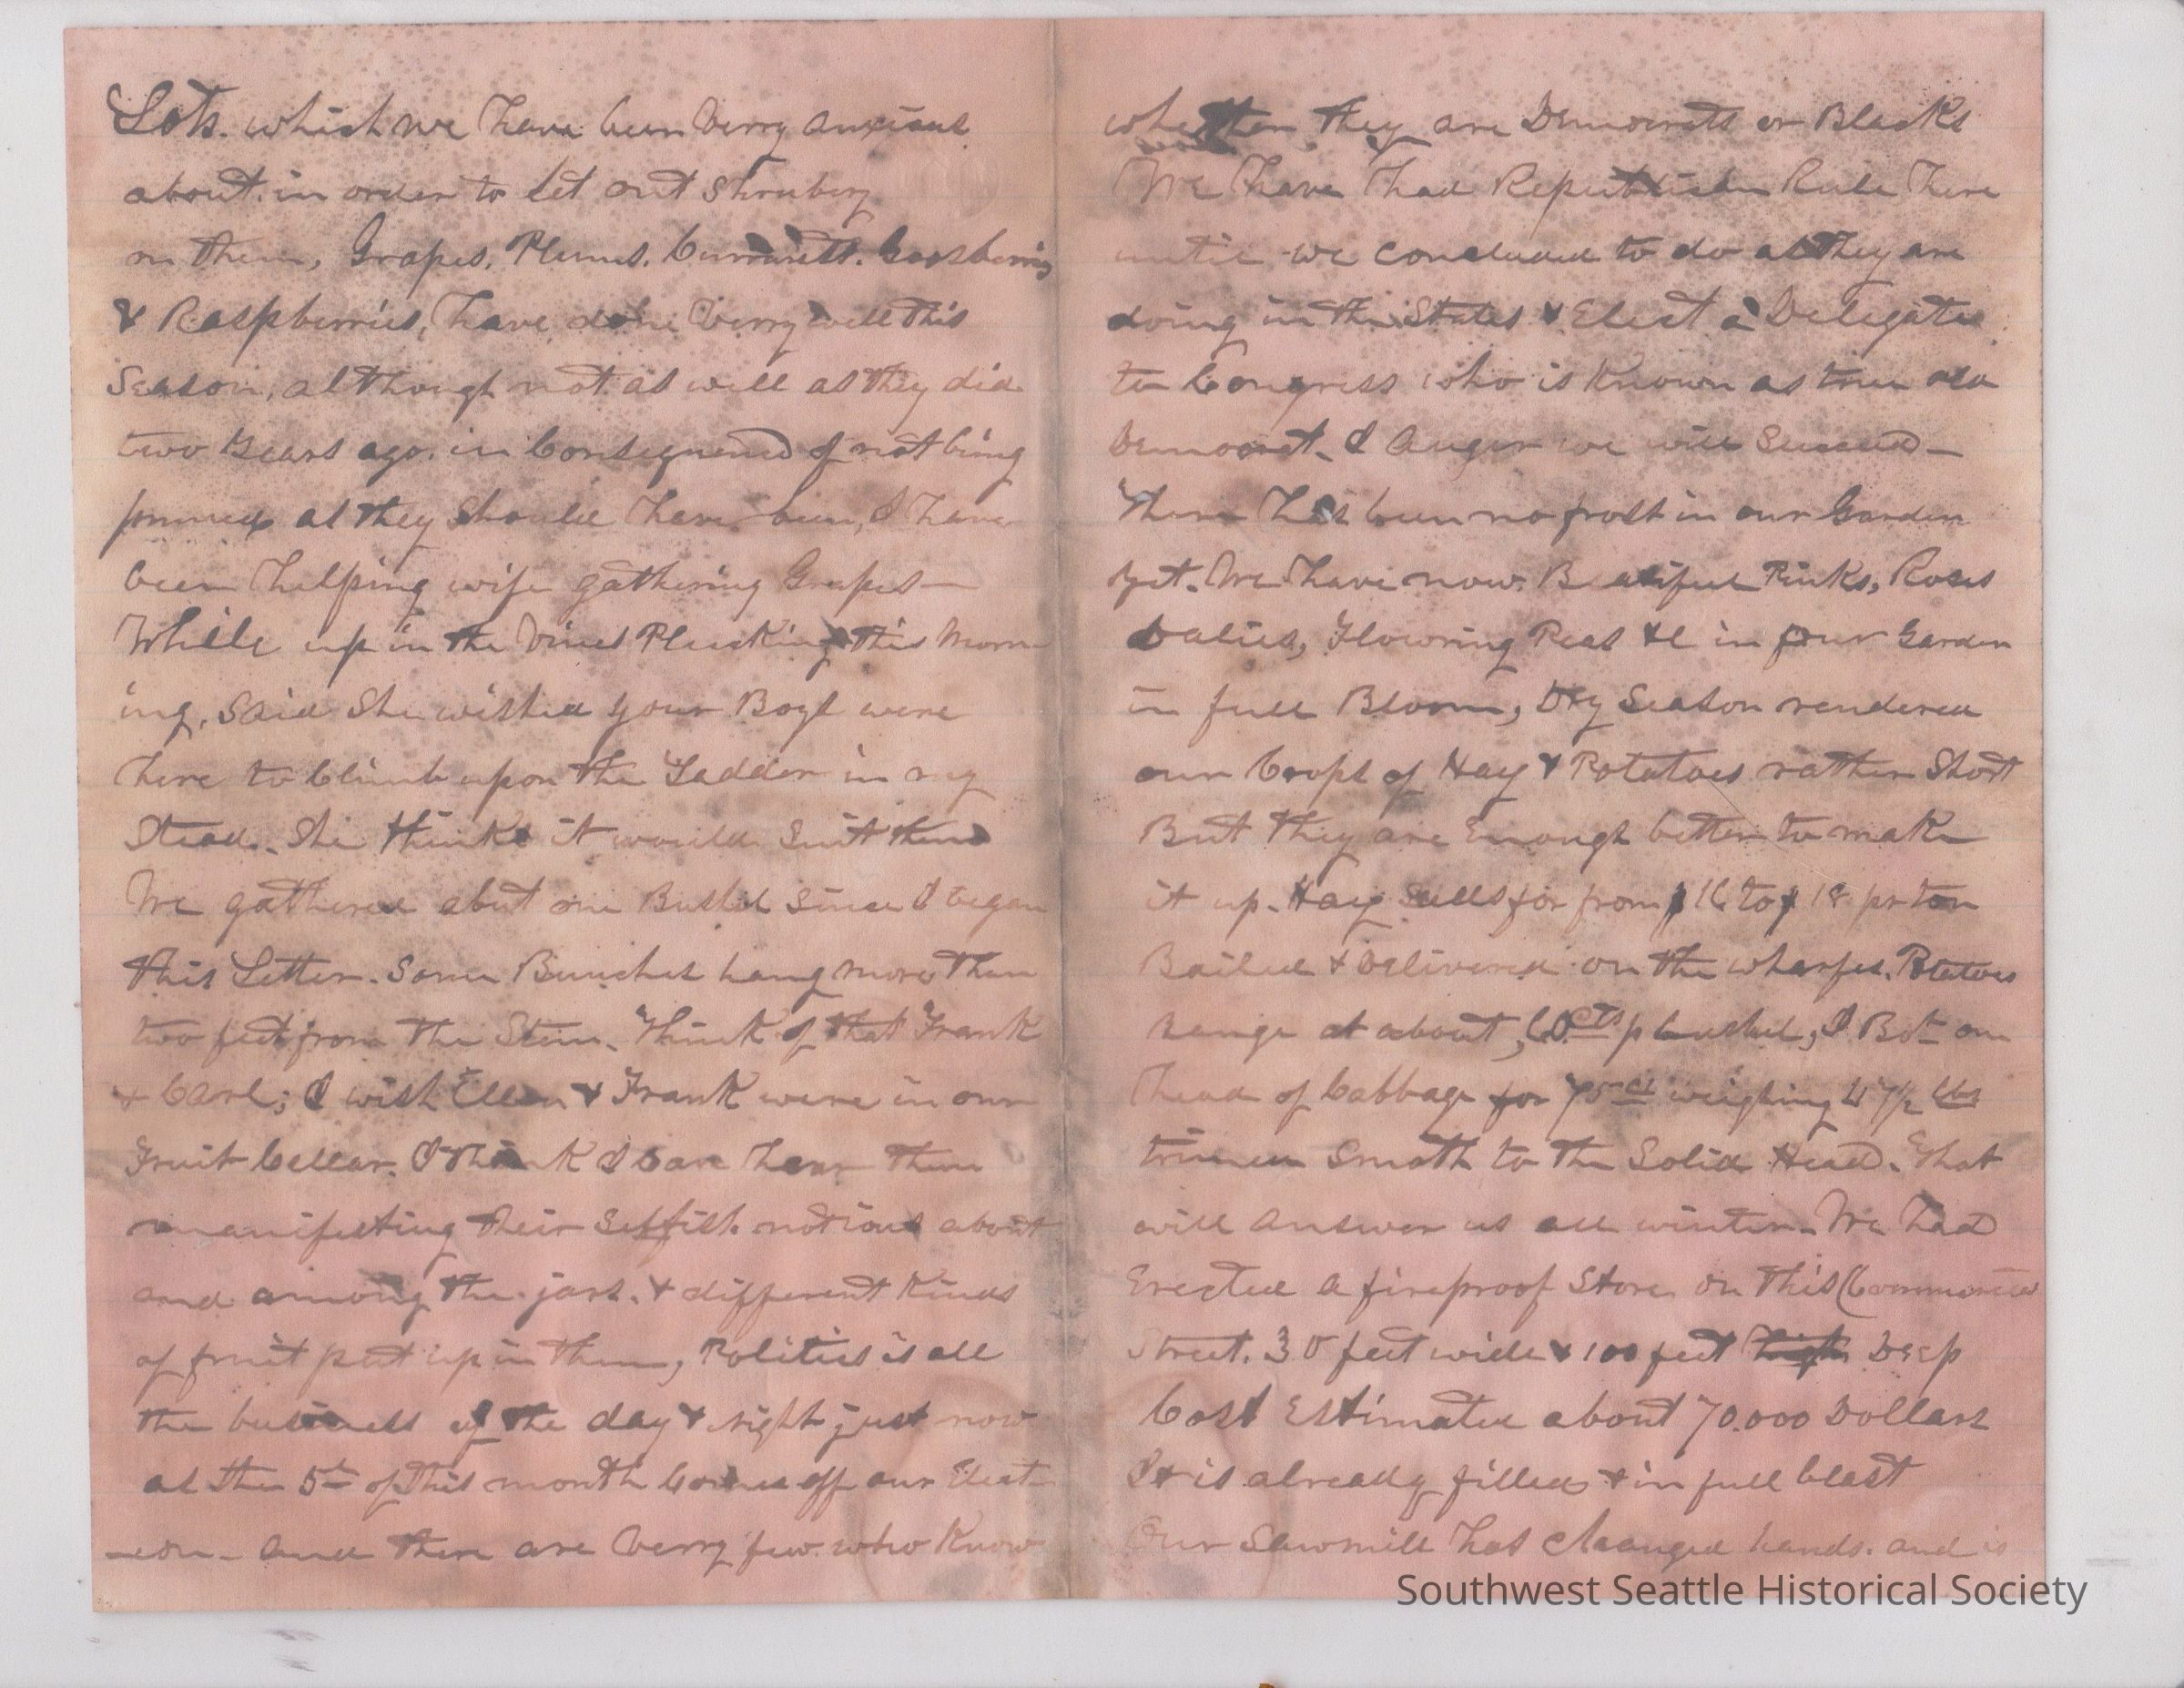 Lots. which we have been verry anxious
about. in order to Set out Shrubery
on them, Grapes, Plums. Currantts. Goosberrys
& Raspberries, have done verry well this
Season, although not as well as they did
two Years ago. in Consequence of not being
as they Should have been, I have
been helping wife gathering Grapes—
While up in the Vines Plucking this Morn
ing, Said She wished your Boys were
here to Climb upon the Ladder in my
Stead. She thinks it would Suit them
We gathered abut one Bushel Since I began
this Letter. Some Bunches hang more then
two feet from the Stem. Think of that Frank
& Carl; I wish Ellen & Frank were in our
Fruit Cellar. I think I can hear them
manifesting their Selfish notions about
and among the jars. & different Kinds
of fruit put up in them, Politics is all
the business of the day & night just now
as the 5th of this month Comes off our Elect
-ion- and there are verry few who Know
whether they are Democrats or Blacks
We have had Republican Rule here
until we concluded to do as they are
doing in the States & Elect a Delegate
to Congress who is Known as true old
Democrat. I Auger we will Succeed—
There has been no frost in our Garden
yet. We have now. Beatiful Pinks, Roses
Dalies, Flowring Peas &c in our Garden
in full Bloom, Dry Season rendered
our Crops of Hay & Potatoes rather Short
But they are Enough better to make
it up. Hay Sells for from $16 to $18 pr ton
Bailed & Delivered on the wharfes. Potatoes
range at about, 60cts p bushel, I Bot one
head of Cabbage for 70cts weighing 47½ lbs
trimed Smoth to the Solid Head. That
will answer us all winter. We had
Erected a fireproof Store on this (Commercial
Street. 30 feet wide & 100 feet high Deep
Cost Estimated about 70.000 Dollars
It is already filled & in full blast
Our Sawmill has changed hands. and is
Southwest Seattle Historical Society